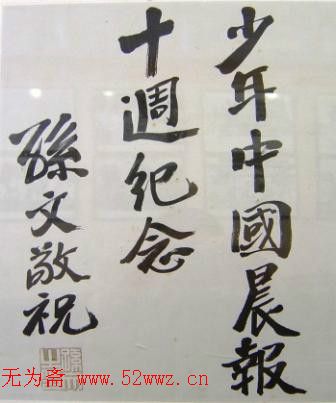 少年中國晨報
十週紀念
孫文敬祝
孫文之印
无为斋 www.52wwz.cn